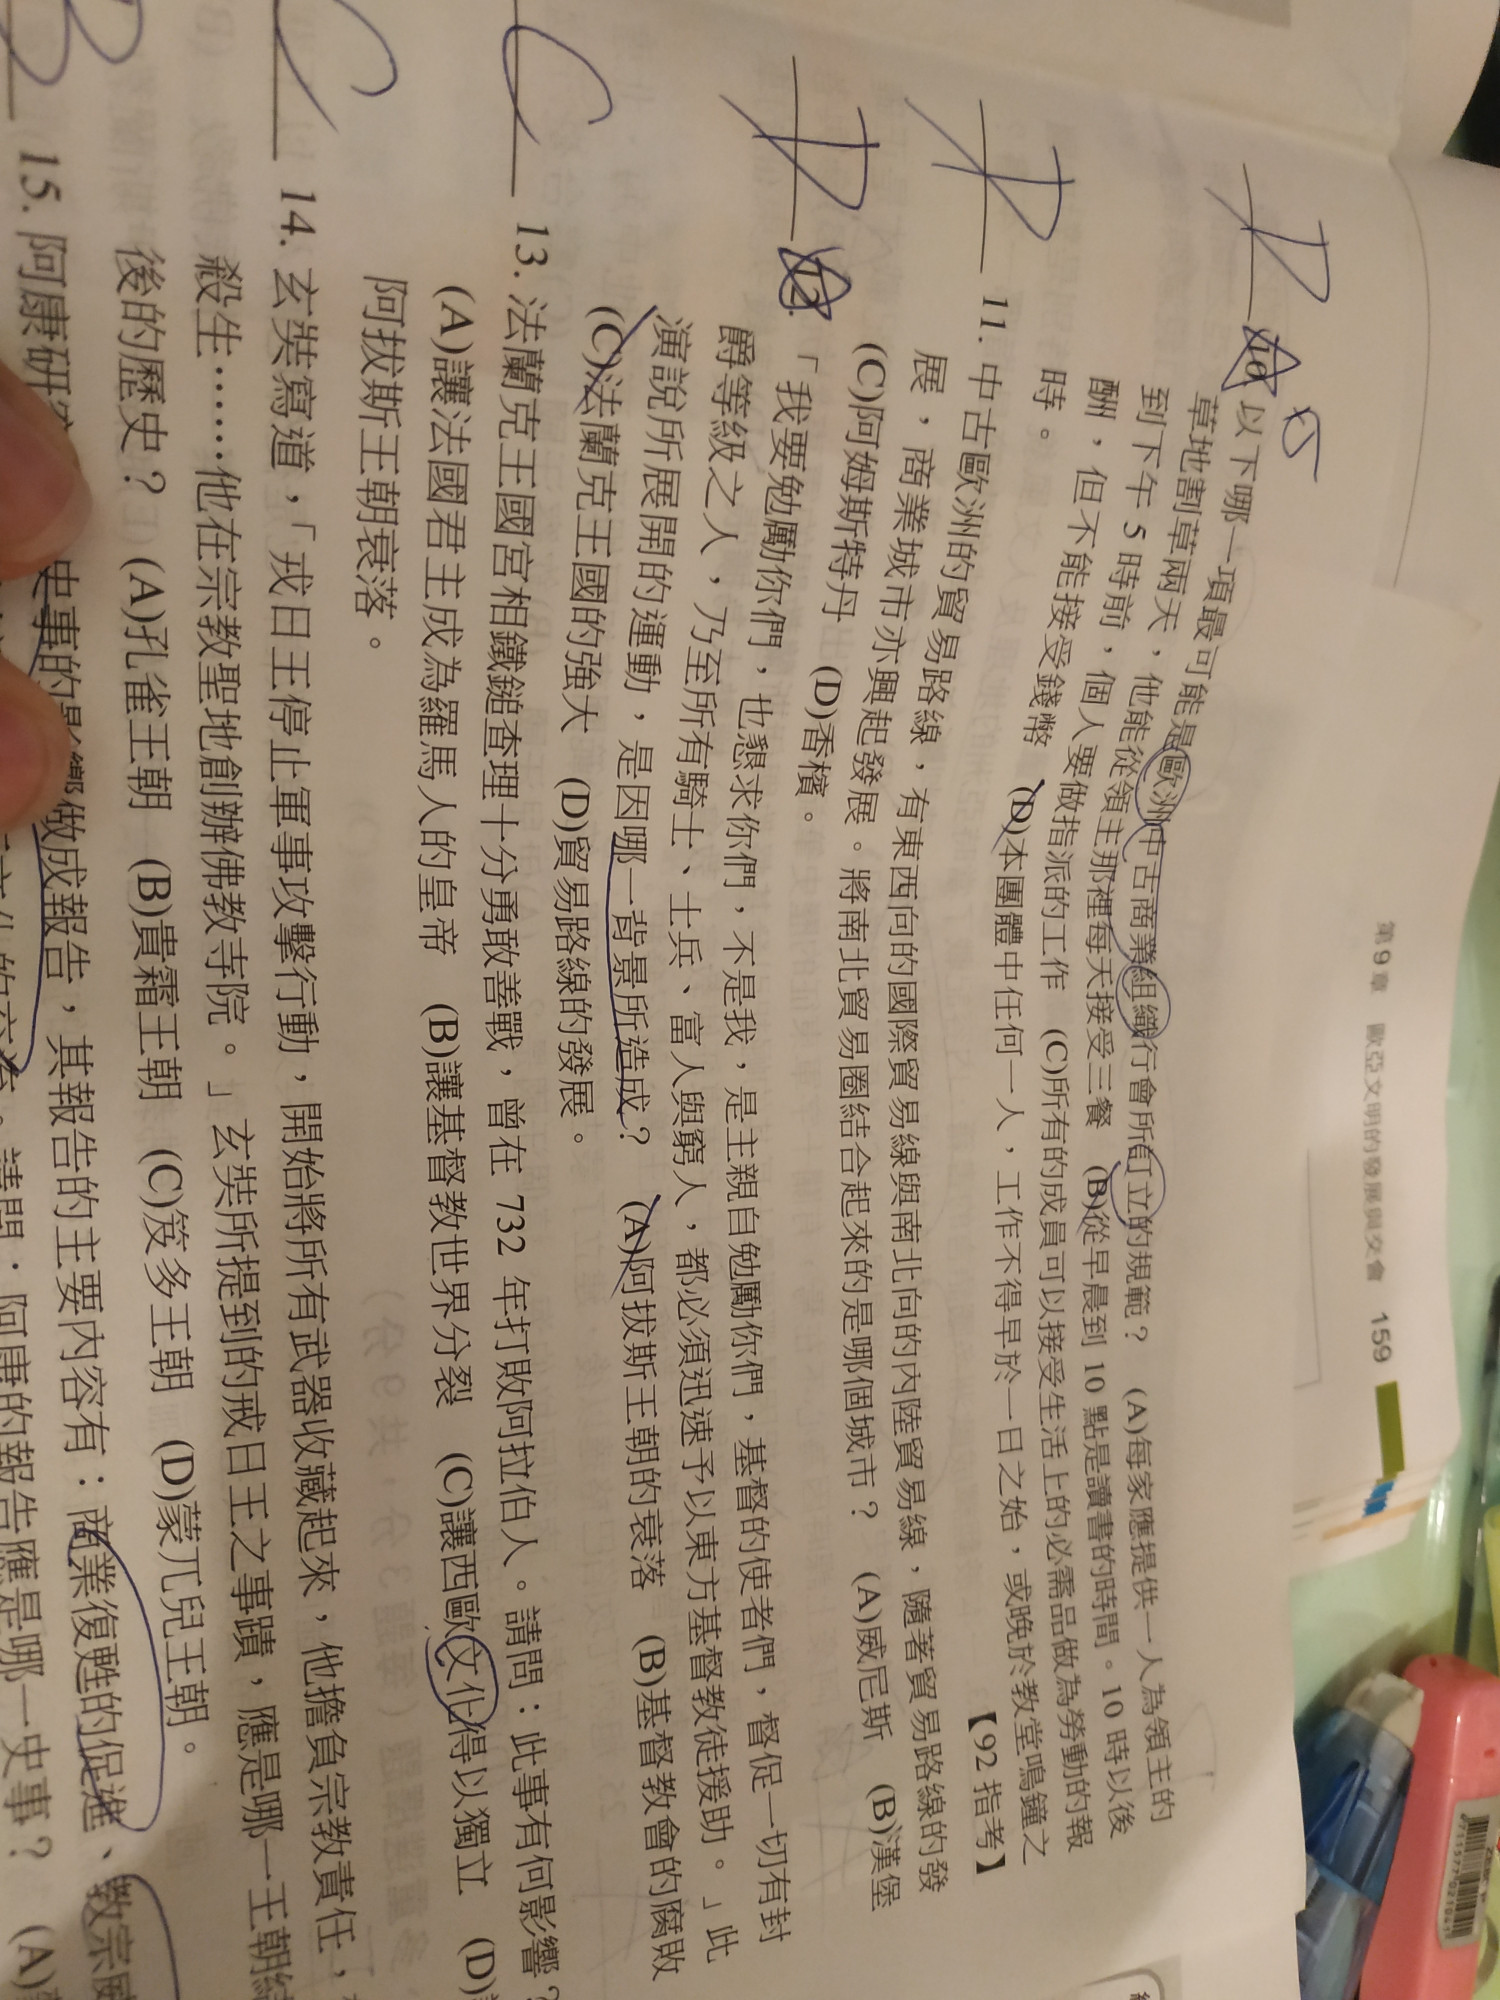 第9章 歐亞文明的發展與交會 159
D 10. 以下哪一項最可能是歐洲中古商業組織行會所訂立的規範? (A)每家應提供一人為領主的
草地割草兩天,他能從領主那裡每天接受三餐 (B)從早晨到 10 點是讀書的時間。10 時以後
到下午 5 時前,個人要做指派的工作 (C)所有的成員可以接受生活上的必需品做為勞動的報
酬,但不能接受錢幣 (D)本團體中任何一人,工作不得早於一日之始,或晚於教堂鳴鐘之
時。 【92 指考】
D 11. 中古歐洲的貿易路線,有東西向的國際貿易線與南北向的內陸貿易線,隨著貿易路線的發
展,商業城市亦興起發展。將南北貿易圈結合起來的是哪個城市? (A)威尼斯 (B)漢堡
(C)阿姆斯特丹 (D)香檳。
D 12. 「我要勉勵你們,也懇求你們,不是我,是主親自勉勵你們,基督的使者們,督促一切有封
爵等級之人,乃至所有騎士、士兵、富人與窮人,都必須迅速予以東方基督教徒援助。」此
演說所展開的運動,是因哪一背景所造成? (A)阿拔斯王朝的衰落 (B)基督教會的腐敗
(C)法蘭克王國的強大 (D)貿易路線的發展。
C 13. 法蘭克王國宮相鐵鎚查理十分勇敢善戰,曾在 732 年打敗阿拉伯人。請問:此事有何影響?
(A)讓法國君主成為羅馬人的皇帝 (B)讓基督教世界分裂 (C)讓西歐文化得以獨立 (D)
阿拔斯王朝衰落。
C 14. 玄奘寫道,「戒日王停止軍事攻擊行動,開始將所有武器收藏起來,他擔負宗教責任,
殺生……他在宗教聖地創辦佛教寺院。」玄奘所提到的戒日王之事蹟,應是哪一王朝
後的歷史? (A)孔雀王朝 (B)貴霜王朝 (C)笈多王朝 (D)蒙兀兒王朝。
B 15. 阿康研 史事的影響做成報告,其報告的主要內容有:商業復甦的促進、教宗
請問:阿康的報告應是哪一史事? (A)